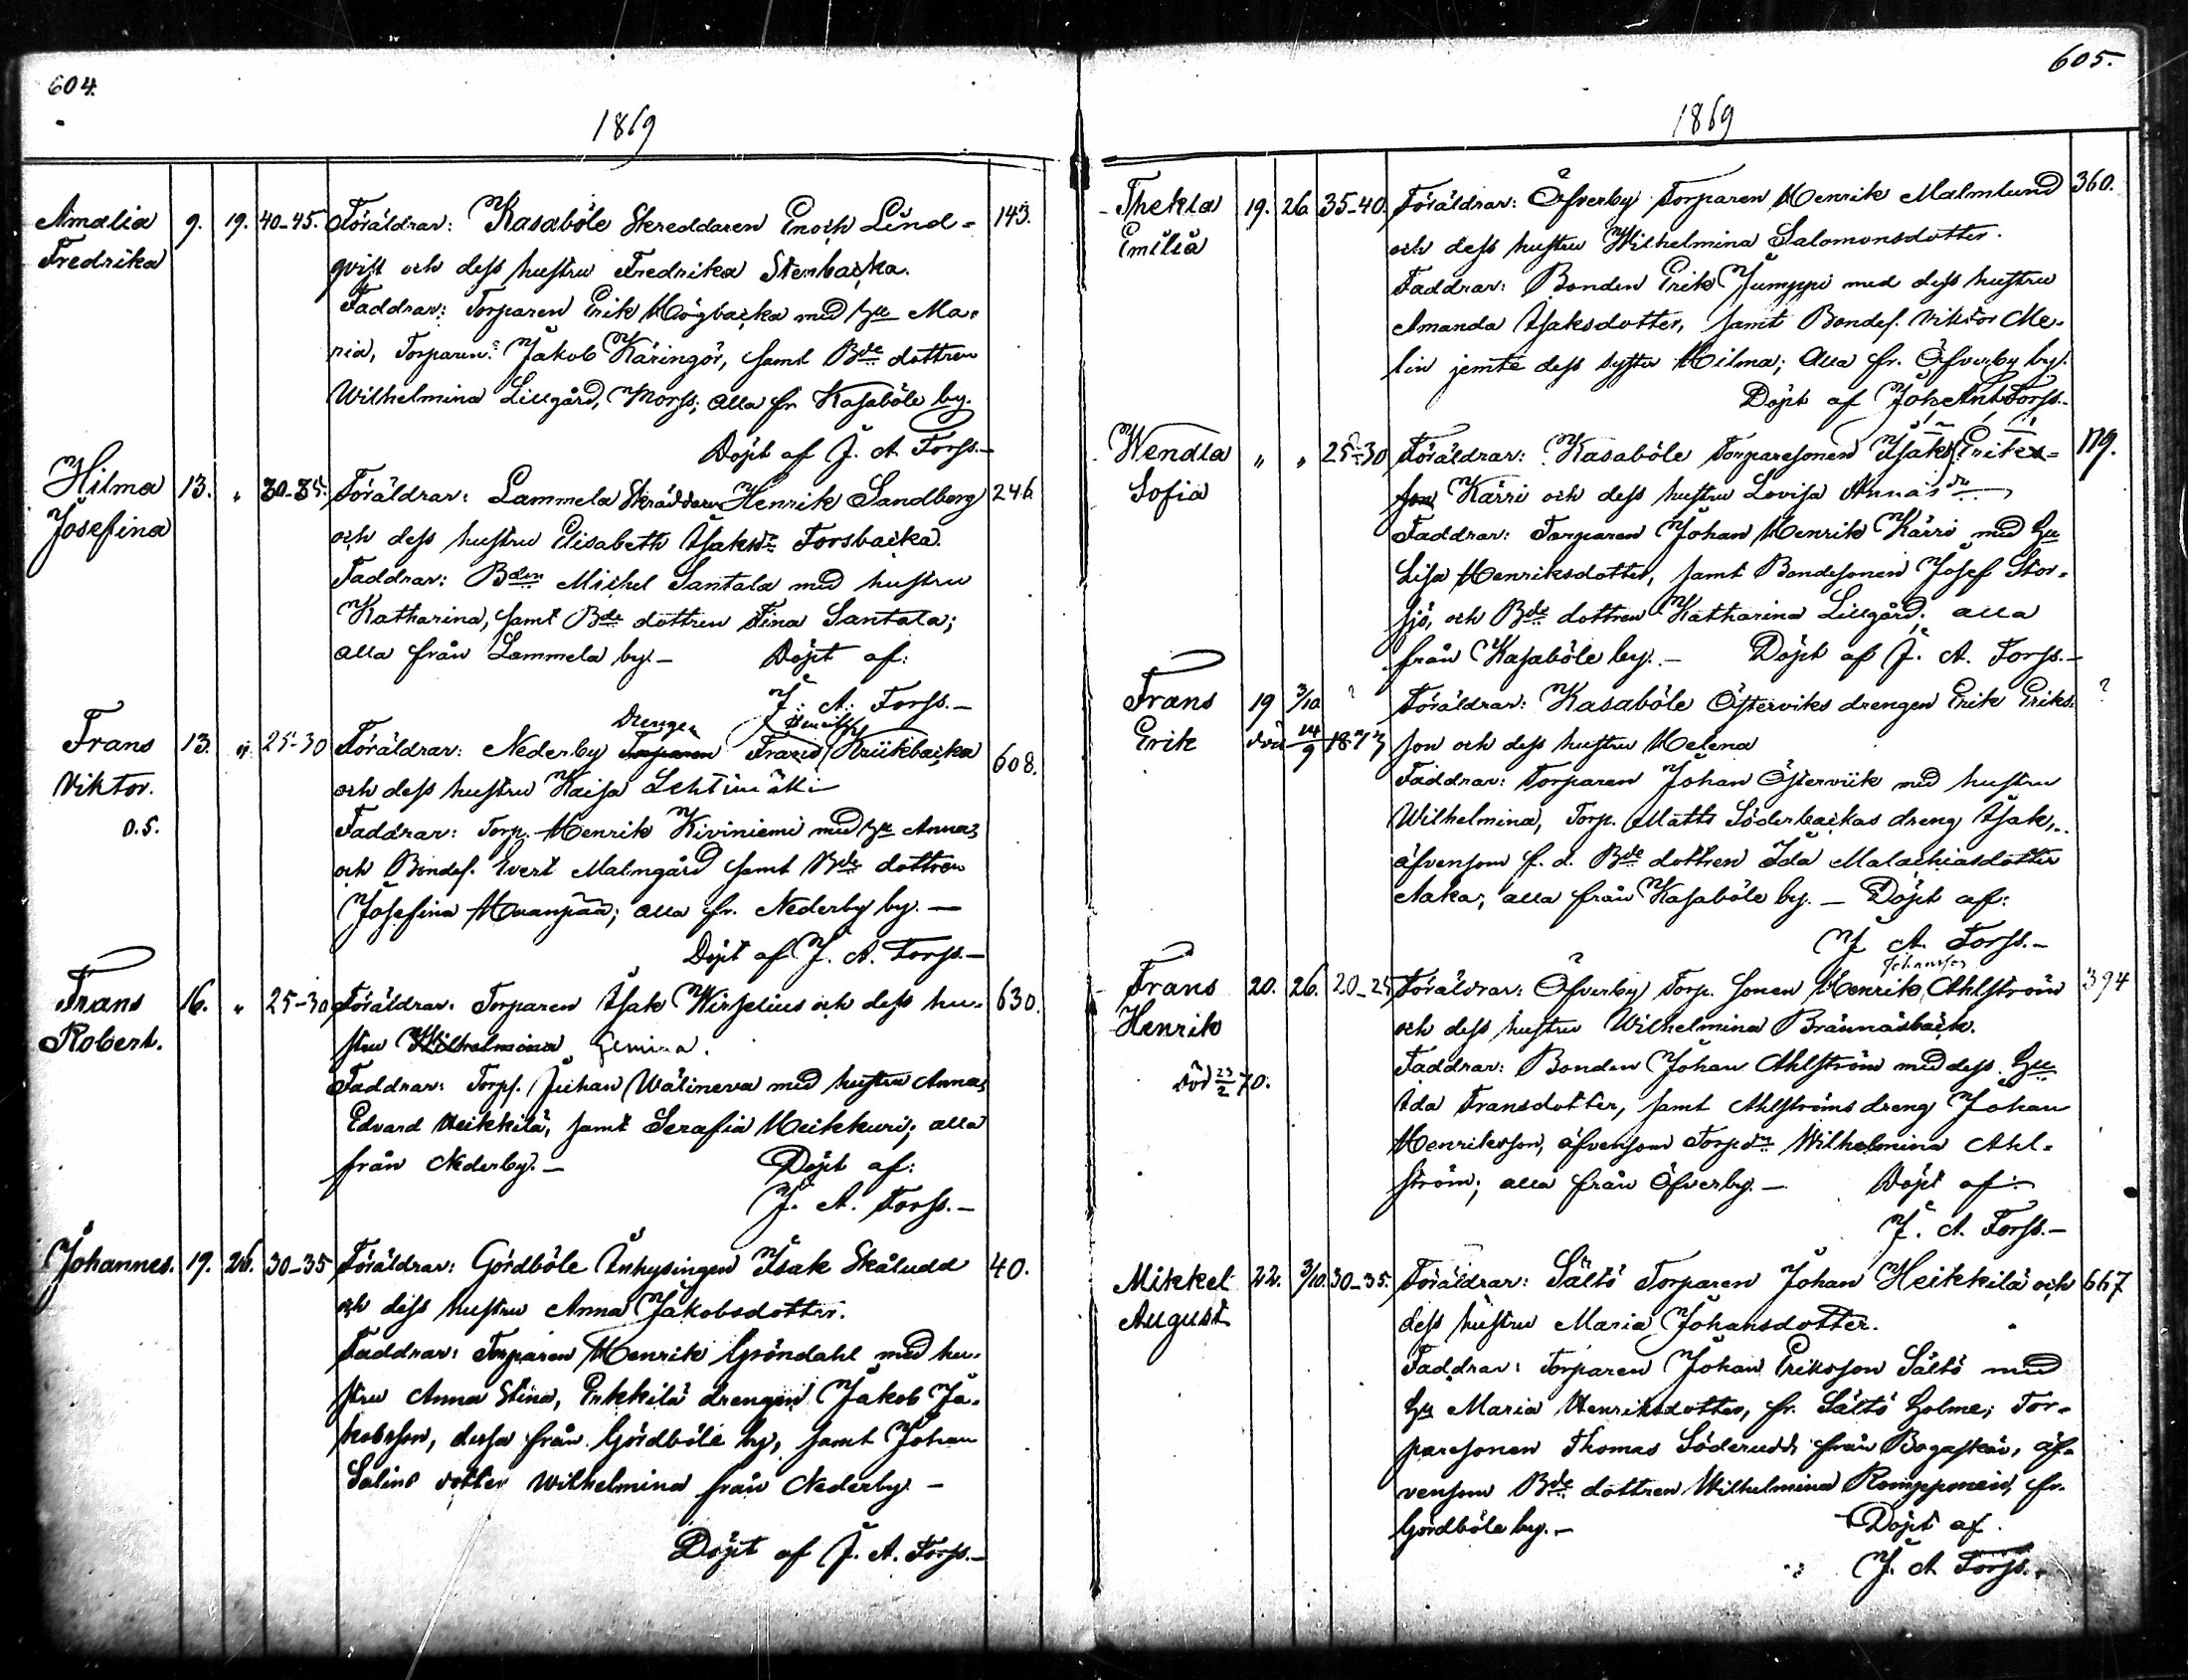 604.
1869
Amalia 9. 19. 40-45. Föräldrar: Kasaböle Skreddaren Enoch Lind= 143.
Fredrika qvist och dess hustru Fredrika Stenbacka.
Faddrar: Torparen Erik Högbacka med hu Ma=
ria, Torparen Jakob Käringör, samt Bde dottren
Wilhelmina Lillgård, Morss; alla fr Kasaböle by.
Döpt af J. A. Forss.-
Hilma 13. " 30-35. Föräldrar: Lammela Skräddaren Henrik Sandberg 246
Josefina och dess hustru Elisabeth Isaksdr Forsbacka.
Faddrar: Bden Michel Santala med hustru
Katharina, samt Bde dottren Fina Santala;
alla från Lammela by.- Döpt af:
J. A. Forss.-
Drengen Henriksson
Frans 13. " 25-30 Föräldrar: Nederby Torparen Frans Krükbacka 608.
Viktor. och dess hustru Kaisa Lehtimäki
o.s. Faddrar: Torp. Henrik Kiviniemi med hu Anna,
och Bondes. Evert Malmgård samt Bde dottren
Josefina Hvanpää; alla fr. Nederby by. -
Döpt af J. A. Forss.-
Frans 16. " 25-30 Föräldrar: Torparen Isak Wirselius och dess hu= 630.
Robert. stru Wilhelmina Gemina.
Faddrar: Torps. Juhan Wälineva med hustru Anna,
Edvard Heikkilä, samt Serafia Heikkuri; alla
från Nederby.- Döpt af:
J. A. Forss.-
Johannes. 19. 26. 30-35 Föräldrar: Gördböle Inhysingen Isak Skåludd 40.
och dess hustru Anna Jakobsdotter.
Faddrar: Torparen Henrik Gröndahl med hu=
stru Anna Stina, Erkkilä drengen Jakob Ja=
kobsson, dessa från Gördböle by, samt Johan
Salins dotter Wilhelmina från Nederby. -
Döpt af J. A. Forss.-
605.
1869
Thekla 19. 26. 35-40. Föräldrar: Öfverby Torparen Henrik Malmlund 360.
Emilia och dess hustru Wilhelmina Salomonsdotter.
Faddrar: Bonden Erik Jumppi med dess hustru
Amanda Isaksdotter, samt Bondes. Viktor Me=
lin jemte dess syster Hilma; alla fr. Öfverby by.
Döpt af Joh. Ant. Forss.-
Wendla " " 25-30 Föräldrar: Kasaböle Torparesonen Isak Eriks= 179.
Sofia son Kärri och dess hustru Lovisa Annasdr
Faddrar: Torparen Johan Henrik Kärri med hu
Lisa Henriksdotter, samt Bondesonen Josef Stor=
sjö, och Bde dottren Katharina Lillgård; alla
från Kasaböle by.- Döpt af J. A. Forss.-
Frans 19 3/10 ? Föräldrar: Kasaböle Österviks drengen Erik Eriks= ?
Erik död 14/9 1877 son och dess hustru Helena
Faddrar: Torparen Johan Österviik med hustru
Wilhelmina, Torp. Matts Söderbackas dreng Isak,
äfvensom f. d. Bde dottren Ida Malachiasdotter
Aaka; alla från Kasaböle by. - Döpt af:
J A. Forss.-
Johansson
Frans 20. 26. 20-25 Föräldrar: Öfverby Torp. sonen Henrik Ahlström 394
Henrik och dess hustru Wilhelmina Brännäsback.
död 23/2 70. Faddrar: Bonden Johan Ahlström med dess hu
Ida Fransdotter, samt Ahlströms dreng Johan
Henriksson, äfvensom Torpdn Wilhelmina Ahl=
ström; alla från Öfverby. - Döpt af:
J. A. Forss.-
Mikkel 22. 3/10. 30-35. Föräldrar: Sältö Torparen Johan Heikkilä och 667
August dess hustru Maria Johansdotter.
Faddrar: Torparen Johan Eriksson Sältö med
hu Maria Henriksdotter, fr. Sältö holme; Tor=
paresonen Thomas Söderudd från Bogaskär, äf=
vensom Bde dottren Wilhelmina Rompponen, fr.
Gördböle by.- Döpt af
J. A Forss.